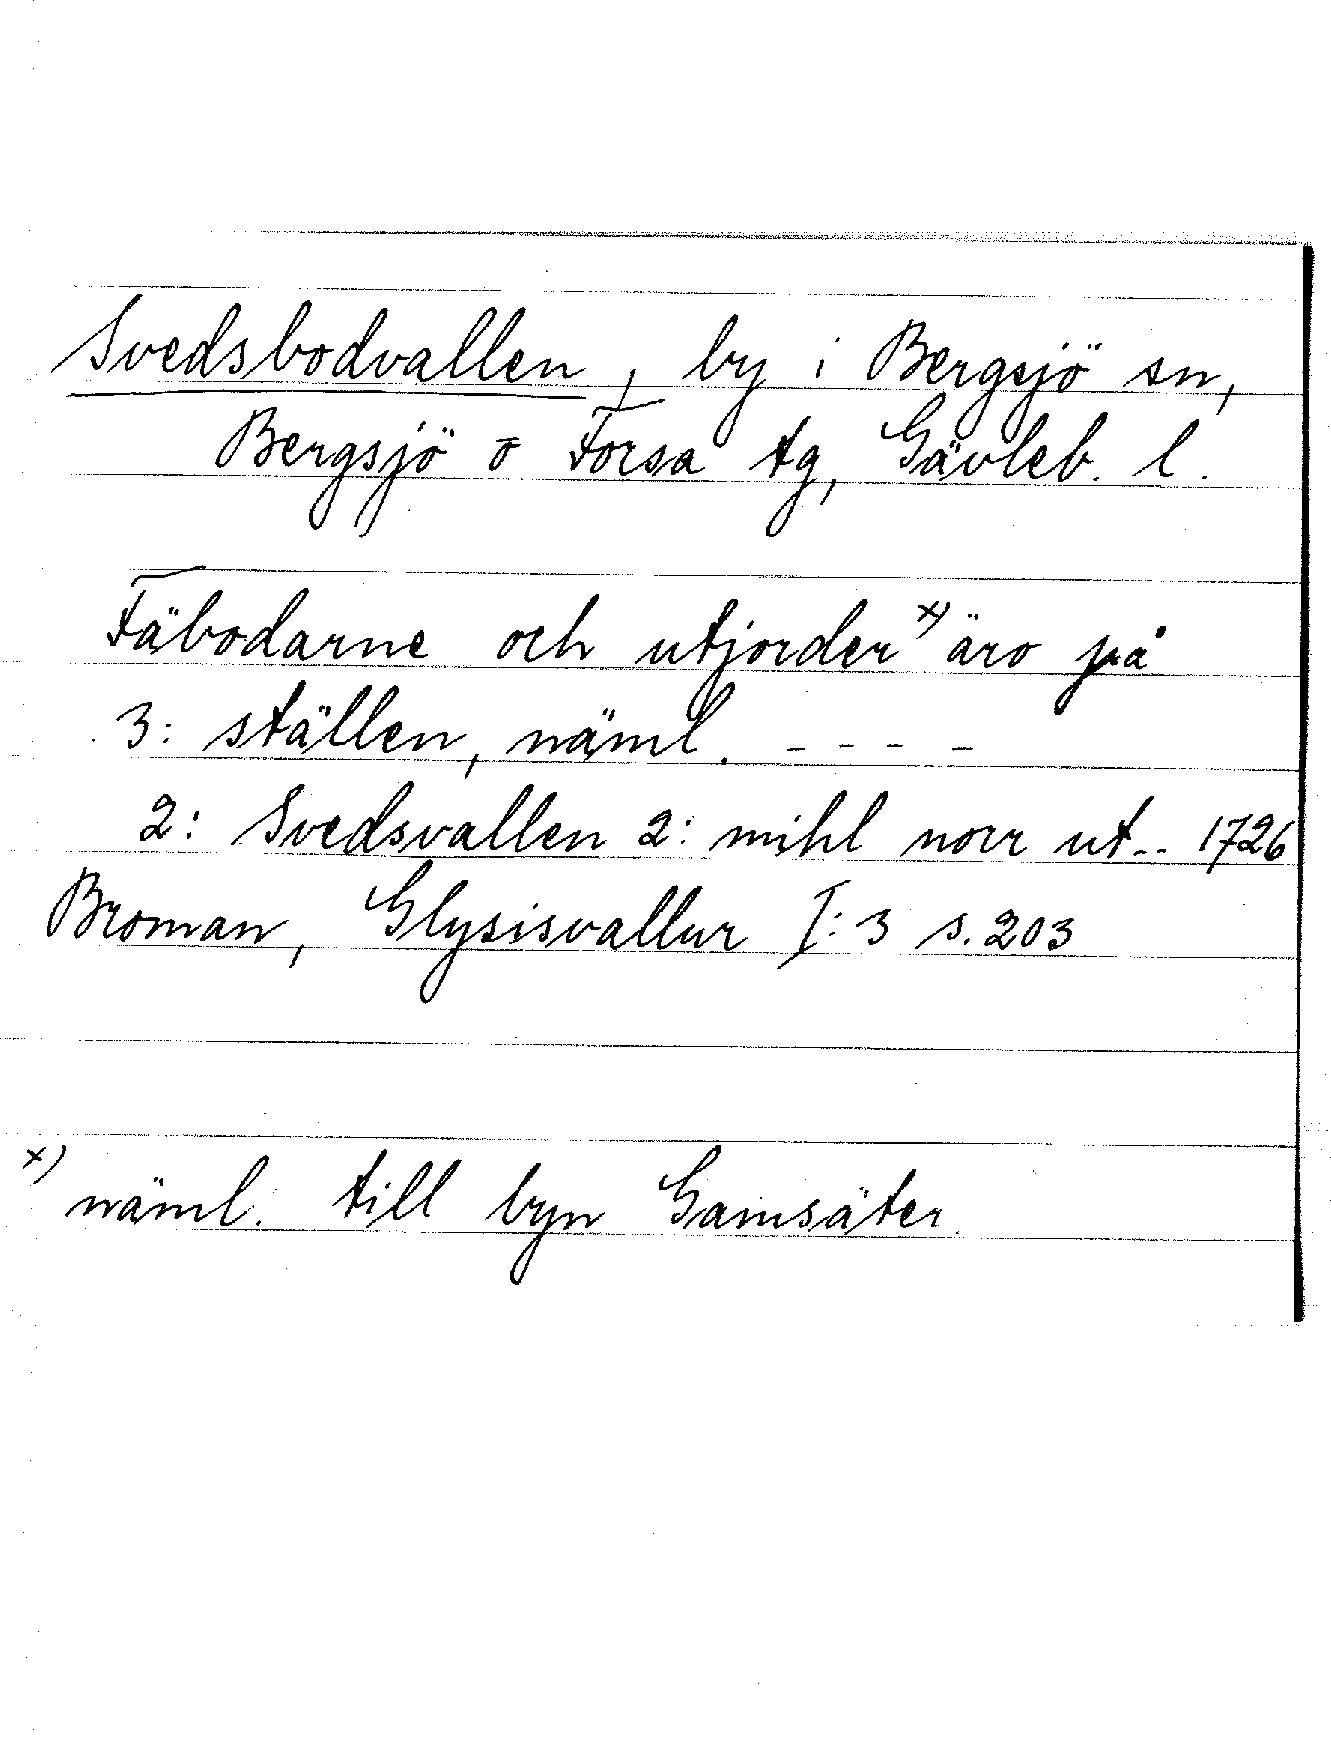 Svedsbodvallen, by i Bergsjö sn,
Bergsjö o Forsa tg, Gävleb. l.
Fäbodarne och utjorder x) äro på
3: ställen, näml. - - - -
2: Svedsvallen 2: mihl norr ut -- 1726
Broman, Glysisvallur I: 3 s. 203
x) näml. till byn Gamsäter.